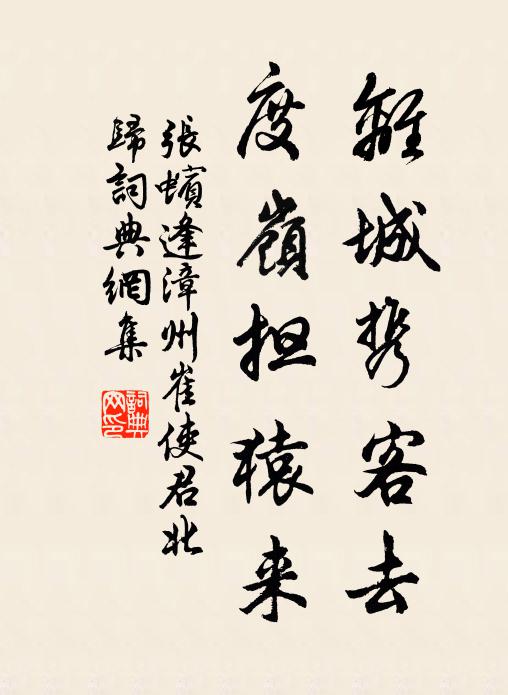 離城携客去
度嶺担猿来
張蠙逢漳州崔使君北
歸詞典網集
詞典
网印